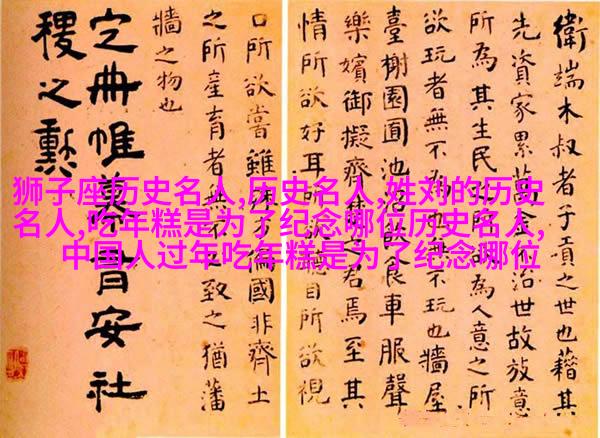 狮子座历史名人,历史名人,姓刘的历史
名人,吃年糕是为了纪念哪位历史名人,
中国人过年吃年糕是为了纪念哪位
衛端木叔者子貢之世也藉其
先資家累萬金不治世故放意
所為其生民之所欲為人意之所
欲玩者無不為也無不玩也牆屋
臺榭園囿池沼飲食車服聲
樂嬪御擬齊楚之君焉至其
情所欲好耳所欲聽目所欲視
口所欲嘗雖殊方偏國非齊土
之所產育者無不必致之猶藩
牆之物也
定冊帷幕有安社
稷之勲